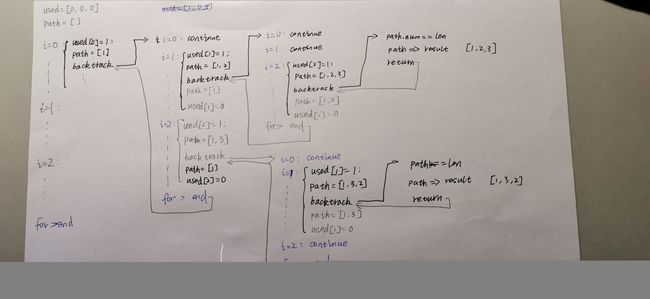 used=[0,0,0]
path=[]
i=0
used[0]=1;
path=[1]
backtrack
i=1:
i=2:
for>end
i=0: continue
i=1:
used[1]=1;
path=[1,2]
backtrack
path=[1]
used[1]=0
i=2:
used[2]=1;
path=[1,3]
backtrack
path=[1]
used[2]=0
for> end
i=0: continue
i=1: continue
i=2:
used[2]=1;
path=[1,2,3]
backtrack
path=[1,2]
used[2]=0
for> end
path.num==len
path=>result [1,2,3]
return
i=0: continue
i=1:
used[1]=1;
path=[1,3,2]
backtrack
path=[1,3]
used[1]=0
i=2: continue
path=>result [1,3,2]
return